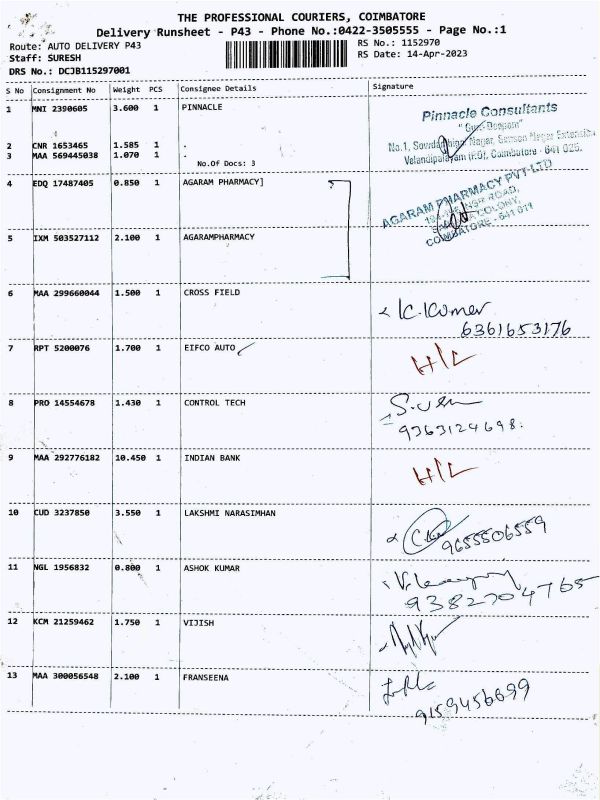 THE PROFESSIONAL COURIERS, COIMBATORE
Delivery Runsheet - P43 - Phone No.:0422-3505555 - Page No.:1
Route: AUTO DELIVERY P43
RS No.: 1152970
Staff: SURESH
RS Date: 14-Apr-2023
DRS No.: DCJB115297001
S No Consignment No Weight PCS Consignee Details Signature
1 MNI 2390605 3.600 1 PINNACLE
Pinnacle Consultants
2 CNR 1653465 1.585 1 .
3 MAA 569445038 1.070 1 .
No.Of Docs: 3
Velandipalayam (PO), Coimbatore - 641 025.
4 EDQ 17487405 0.850 1 AGARAM PHARMACY]
AGARAM PHARMACY PVT-LTD
COIMBATORE - 641 011
5 IXM 503527112 2.100 1 AGARAMPHARMACY
6 MAA 299660044 1.500 1 CROSS FIELD
K.Kumer
6361653176
7 RPT 5200076 1.700 1 EIFCO AUTO
H/L
8 PRO 14554678 1.430 1 CONTROL TECH
9363124698
9 MAA 292776182 10.450 1 INDIAN BANK
H/L
10 CUD 3237850 3.550 1 LAKSHMI NARASIMHAN
9655506559
11 NGL 1956832 0.800 1 ASHOK KUMAR
9382704765
12 KCM 21259462 1.750 1 VIJISH
13 MAA 300056548 2.100 1 FRANSEENA
9159456699